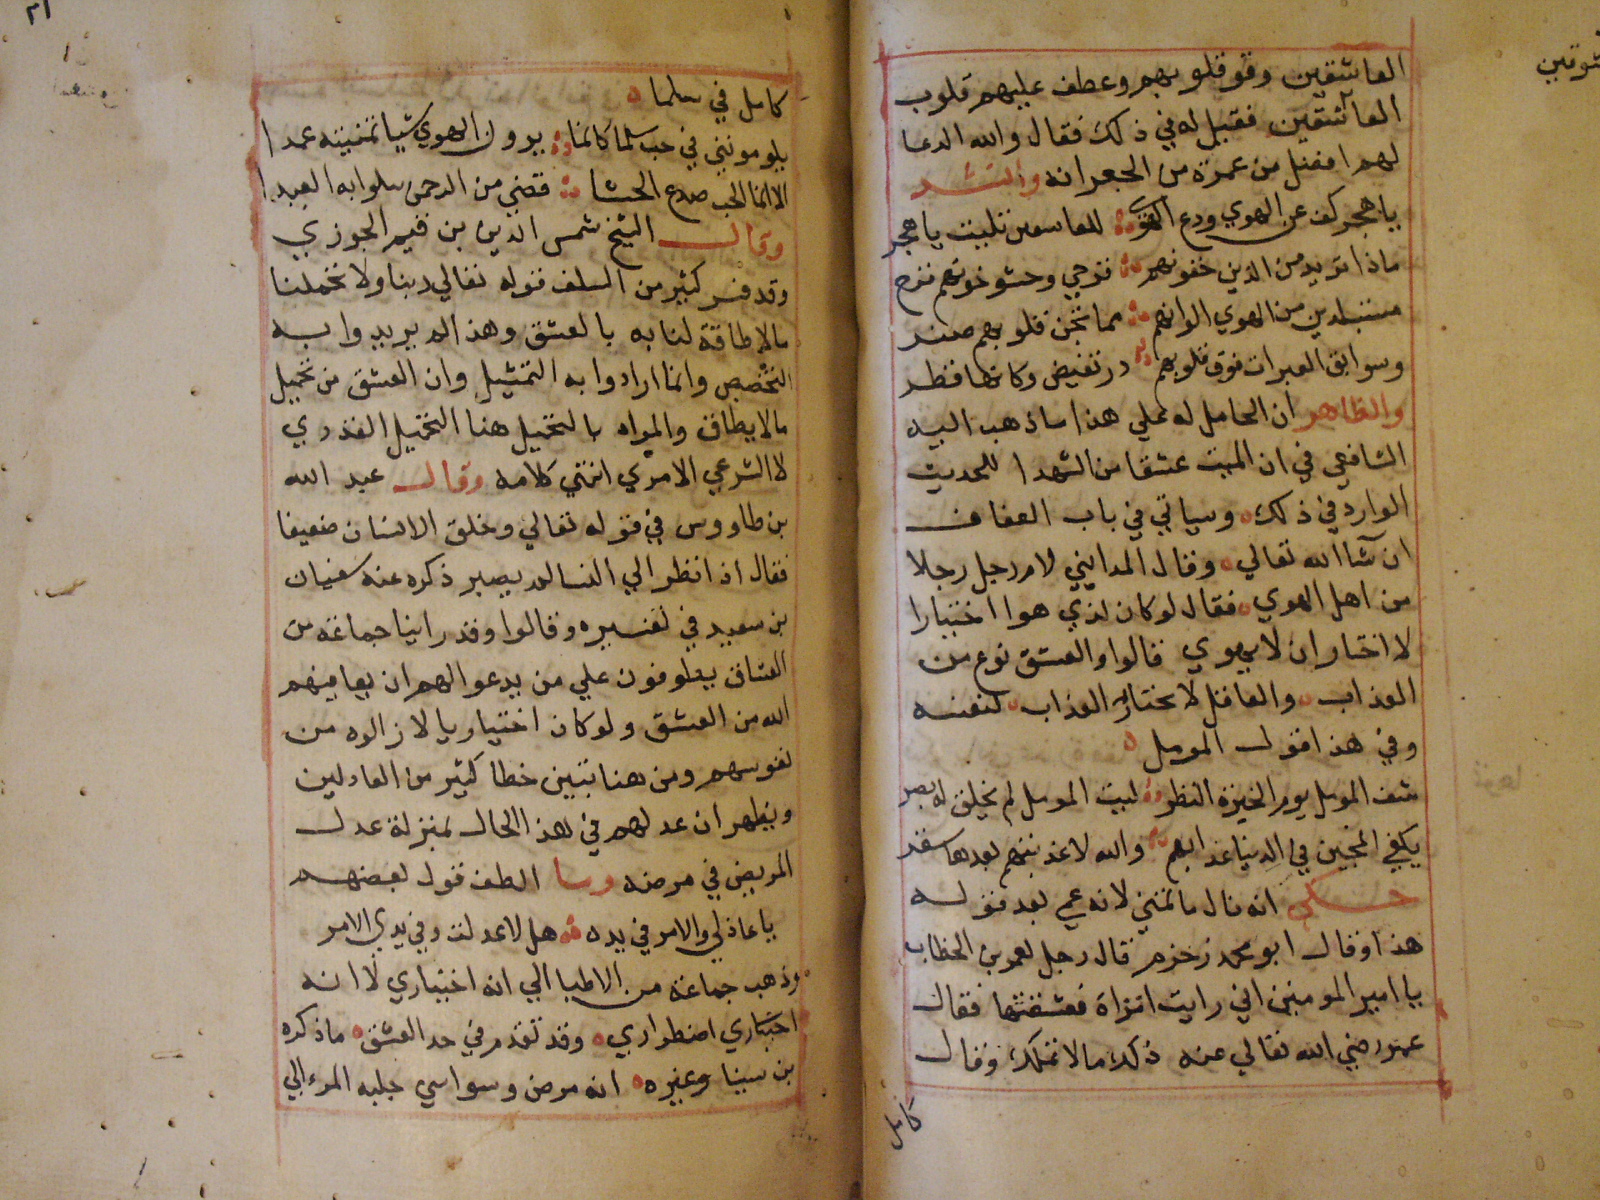 العاشقين وقو قلوبهم وعطف عليهم قلوب
العاشقين فقيل له في ذلك فقال والله الدعا
لهم افضل من عمرة من الجعرانه وانشد
يا هجر كف عن الهوي ودع الهوي للعاشقين تطيب يا هجر
ماذا تريد من الذين جفونهم قرحي وحشو
من الهوي الوانهم مما تجن قلوبهم صفر
وسوابق العبرات فوق در تفيض وكانها قطر
والظاهر ان الحامل له علي هذا ما ذهب اليه
الشافعي في ان الميت عشقا من الشهدا للحديث
الوارد في ذلك وسياتي في باب العفاف
ان شا الله تعالي وقال المدايني لام رجل رجلا
من اهل الهوي فقال لو كان لذي هوا اختيارا
لا اختار ان لا يهوي قالوا والعشق نوع من
العذاب والعاقل لا يختار العذاب لنفسه
وفي هذا قول المومل
شف المومل يوم الحيرة النظر ليت المومل لم يخلق له بصر
يكفي المحبين في الدنيا عذابهم والله لا عذبتهم بعدها سقر
حكي انه نال ما تمني لانه عمي بعد قوله
هذا وقال ابو محمد بن حزم قال رجل لعمر بن الخطاب
يا امير المومنين اني رايت امراة فعشقتها فقال
عمر رضي الله تعالي عنه ذلك مالا تملك وقال
كامل
كامل في سلما
يلومونني في حب سلما كانما يرون الهوي شيا تيممته عمدا
الا انما الحب صدع الحشا قضي من الرحمن يبلوا به العبدا
وقال الشيخ شمس الدين بن قيم الجوزي
وقد فسر كثير من السلف قوله تعالي ربنا ولا تحملنا
مالا طاقة لنا به بالعشق وهذا لم يريدوا به
التخصيص وانما ارادوا به التمثيل وان العشق من تحميل
مالا يطاق والمراه بالتحميل هنا التحميل القدري
لا الشرعي الامري انتهي كلامه وقال عبد الله
بن طاووس في قوله تعالي وخلق الانسان ضعيفا
فقال اذا نظر الي النسا لم يصبر ذكره عنه سفيان
بن سعيد في تفسيره وقالوا وقد راينا جماعة من
العشاق يطوفون علي من يدعوا لهم ان يعافيهم
الله من العشق ولو كان اختياريا لازالوه من
نفوسهم ومن هنا يتبين خطا كثير من العادلين
ويظهر ان عدلهم في هذ الحال بمنزلة عدل
المريض في مرضه وما الطف قول بعضهم
يا عاذلي والامر في يده هل لا عدلت وفي يدي الامر
وذهب جماعة من الاطبا الي انه اختياري لا انه
اختياري اضطراري وقد تقدم في حد العشق ما ذكره
بن سينا وغيره انه مرض وسواسي جلبه المرء الي